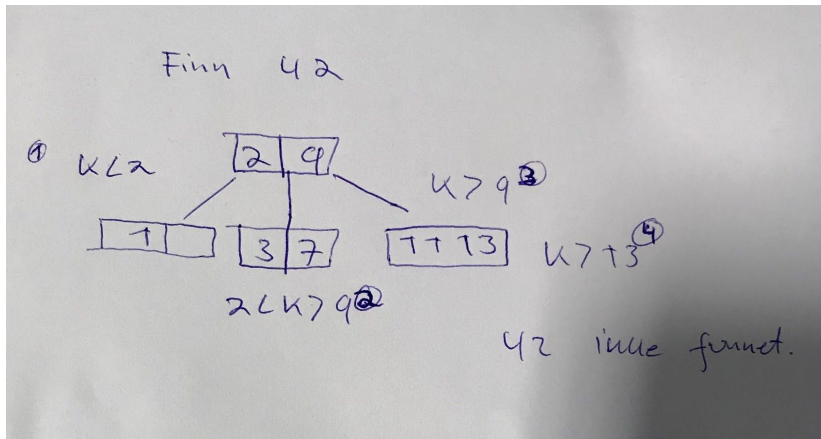 Finn 42
① K<2
2 9
K>9 ③
1
3 7
11 13
K>13 ④
2<K>9 ②
42 ikke funnet.